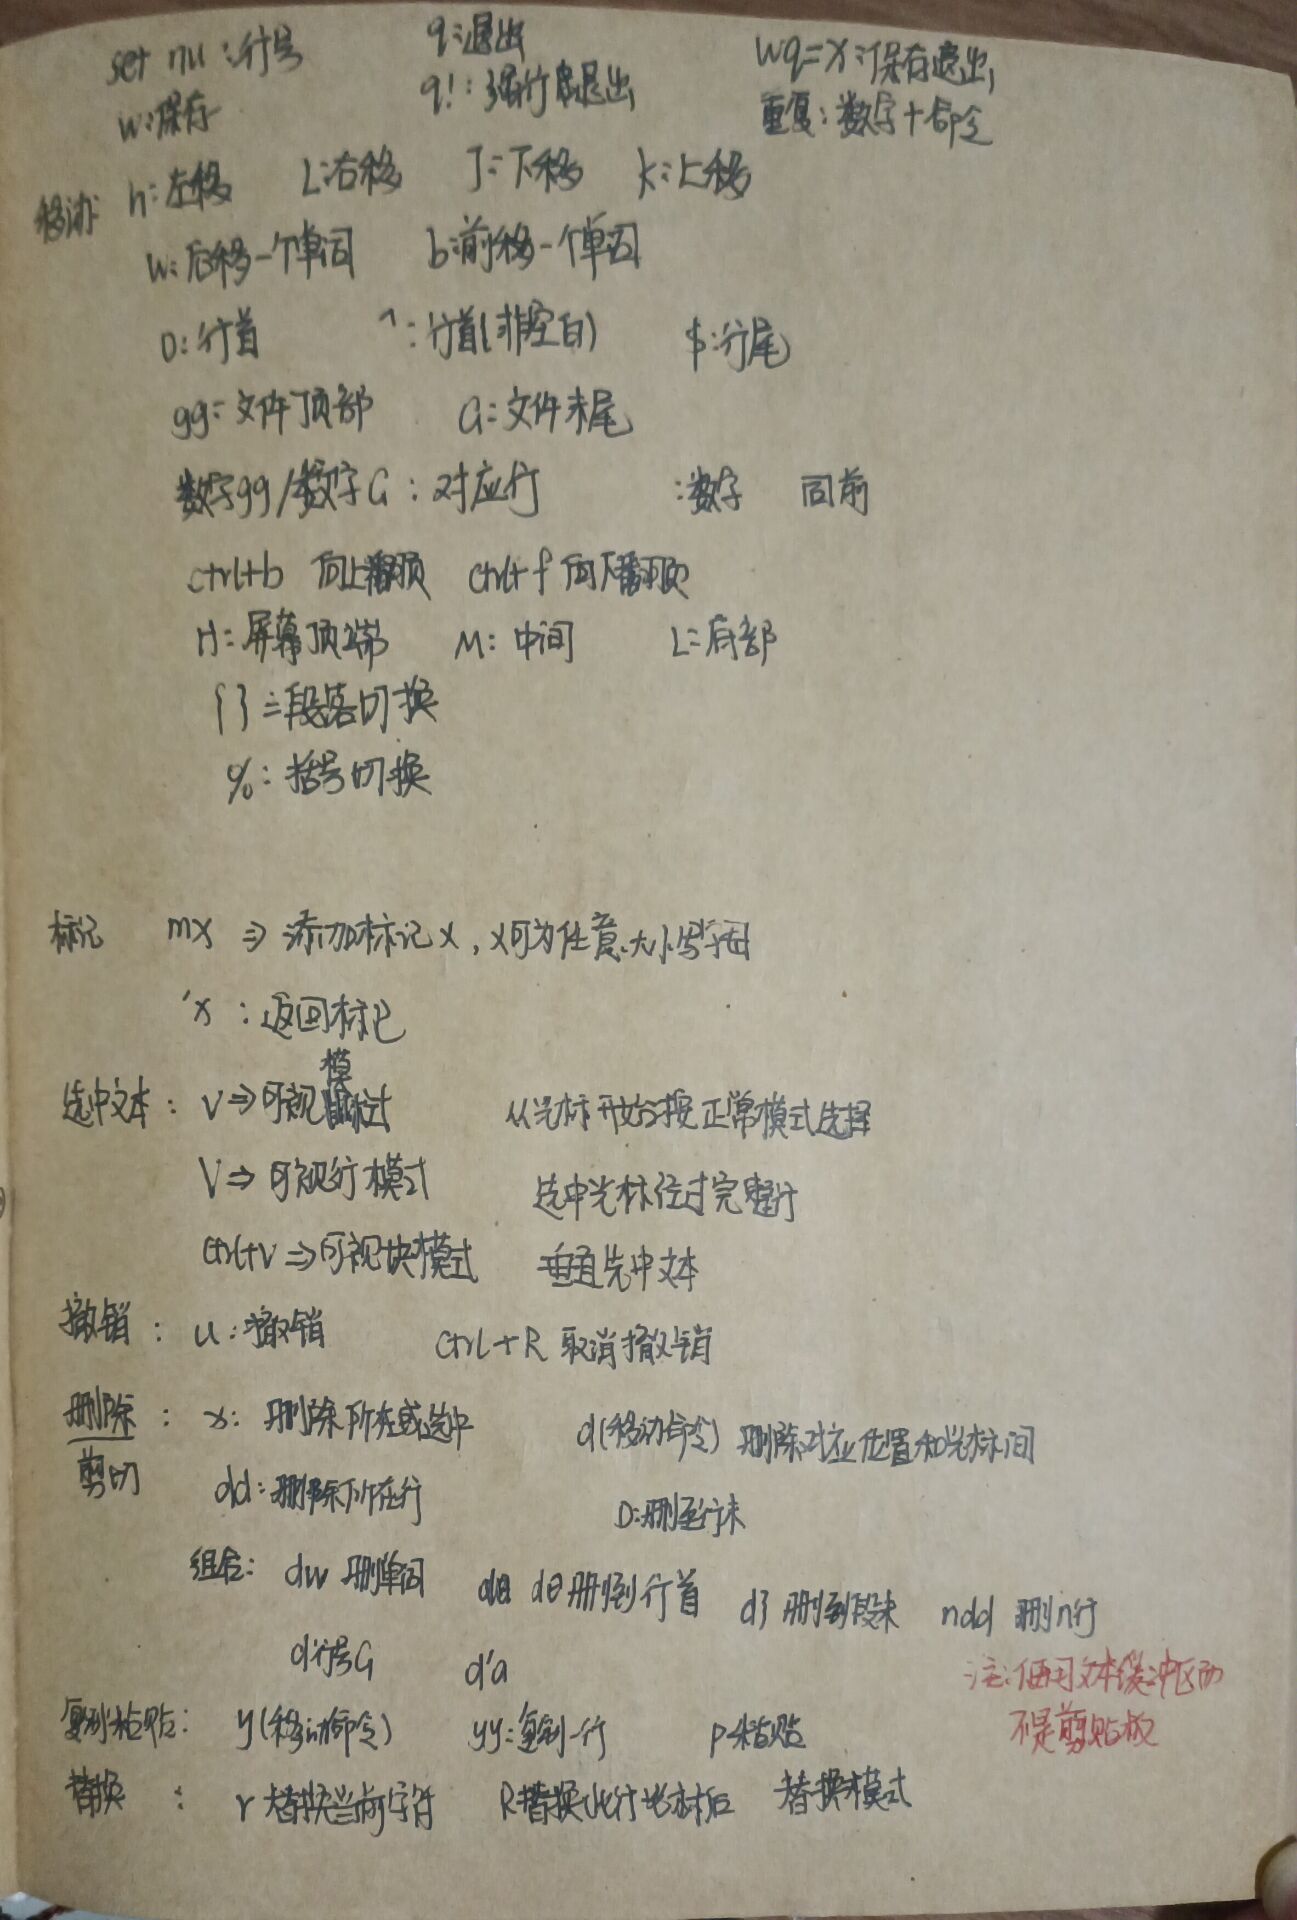 set nu：行号 q：退出 wq=x：保存退出
w：保存 q!：强行退出 重复：数字+命令
移动： h：左移 L：右移 J：下移 k：上移
w：后移一个单词 b：前移一个单词
0：行首 ^：行首(非空白) $：行尾
gg：文件顶部 G：文件末尾
数字gg/数字G：对应行 :数字 同前
ctrl+b 向上翻页 ctrl+f 向下翻页
H：屏幕顶端 M：中间 L：底部
{ }：段落切换
%：括号切换
标记 mx ⇒ 添加标记x，x可为任意大小写字母
'x：返回标记
选中文本： v⇒可视模式 从光标开始按正常模式选择
V⇒可视行模式 选中光标经过完整行
Ctrl+v⇒可视块模式 垂直选中文本
撤销： u：撤销 Ctrl+R 取消撤销
删除： x：删除所在或选中 d(移动命令) 删除对应位置和光标间
剪切 dd：删除所在行 D：删至行末
组合： dw 删单词 d0 删到行首 d} 删到段末 ndd 删n行
d行号G d'a 注：使用文本缓冲区而
复制粘贴： y(移动命令) yy：复制一行 p粘贴 不是剪贴板
替换： r 替换当前字符 R替换此行光标后 替换模式